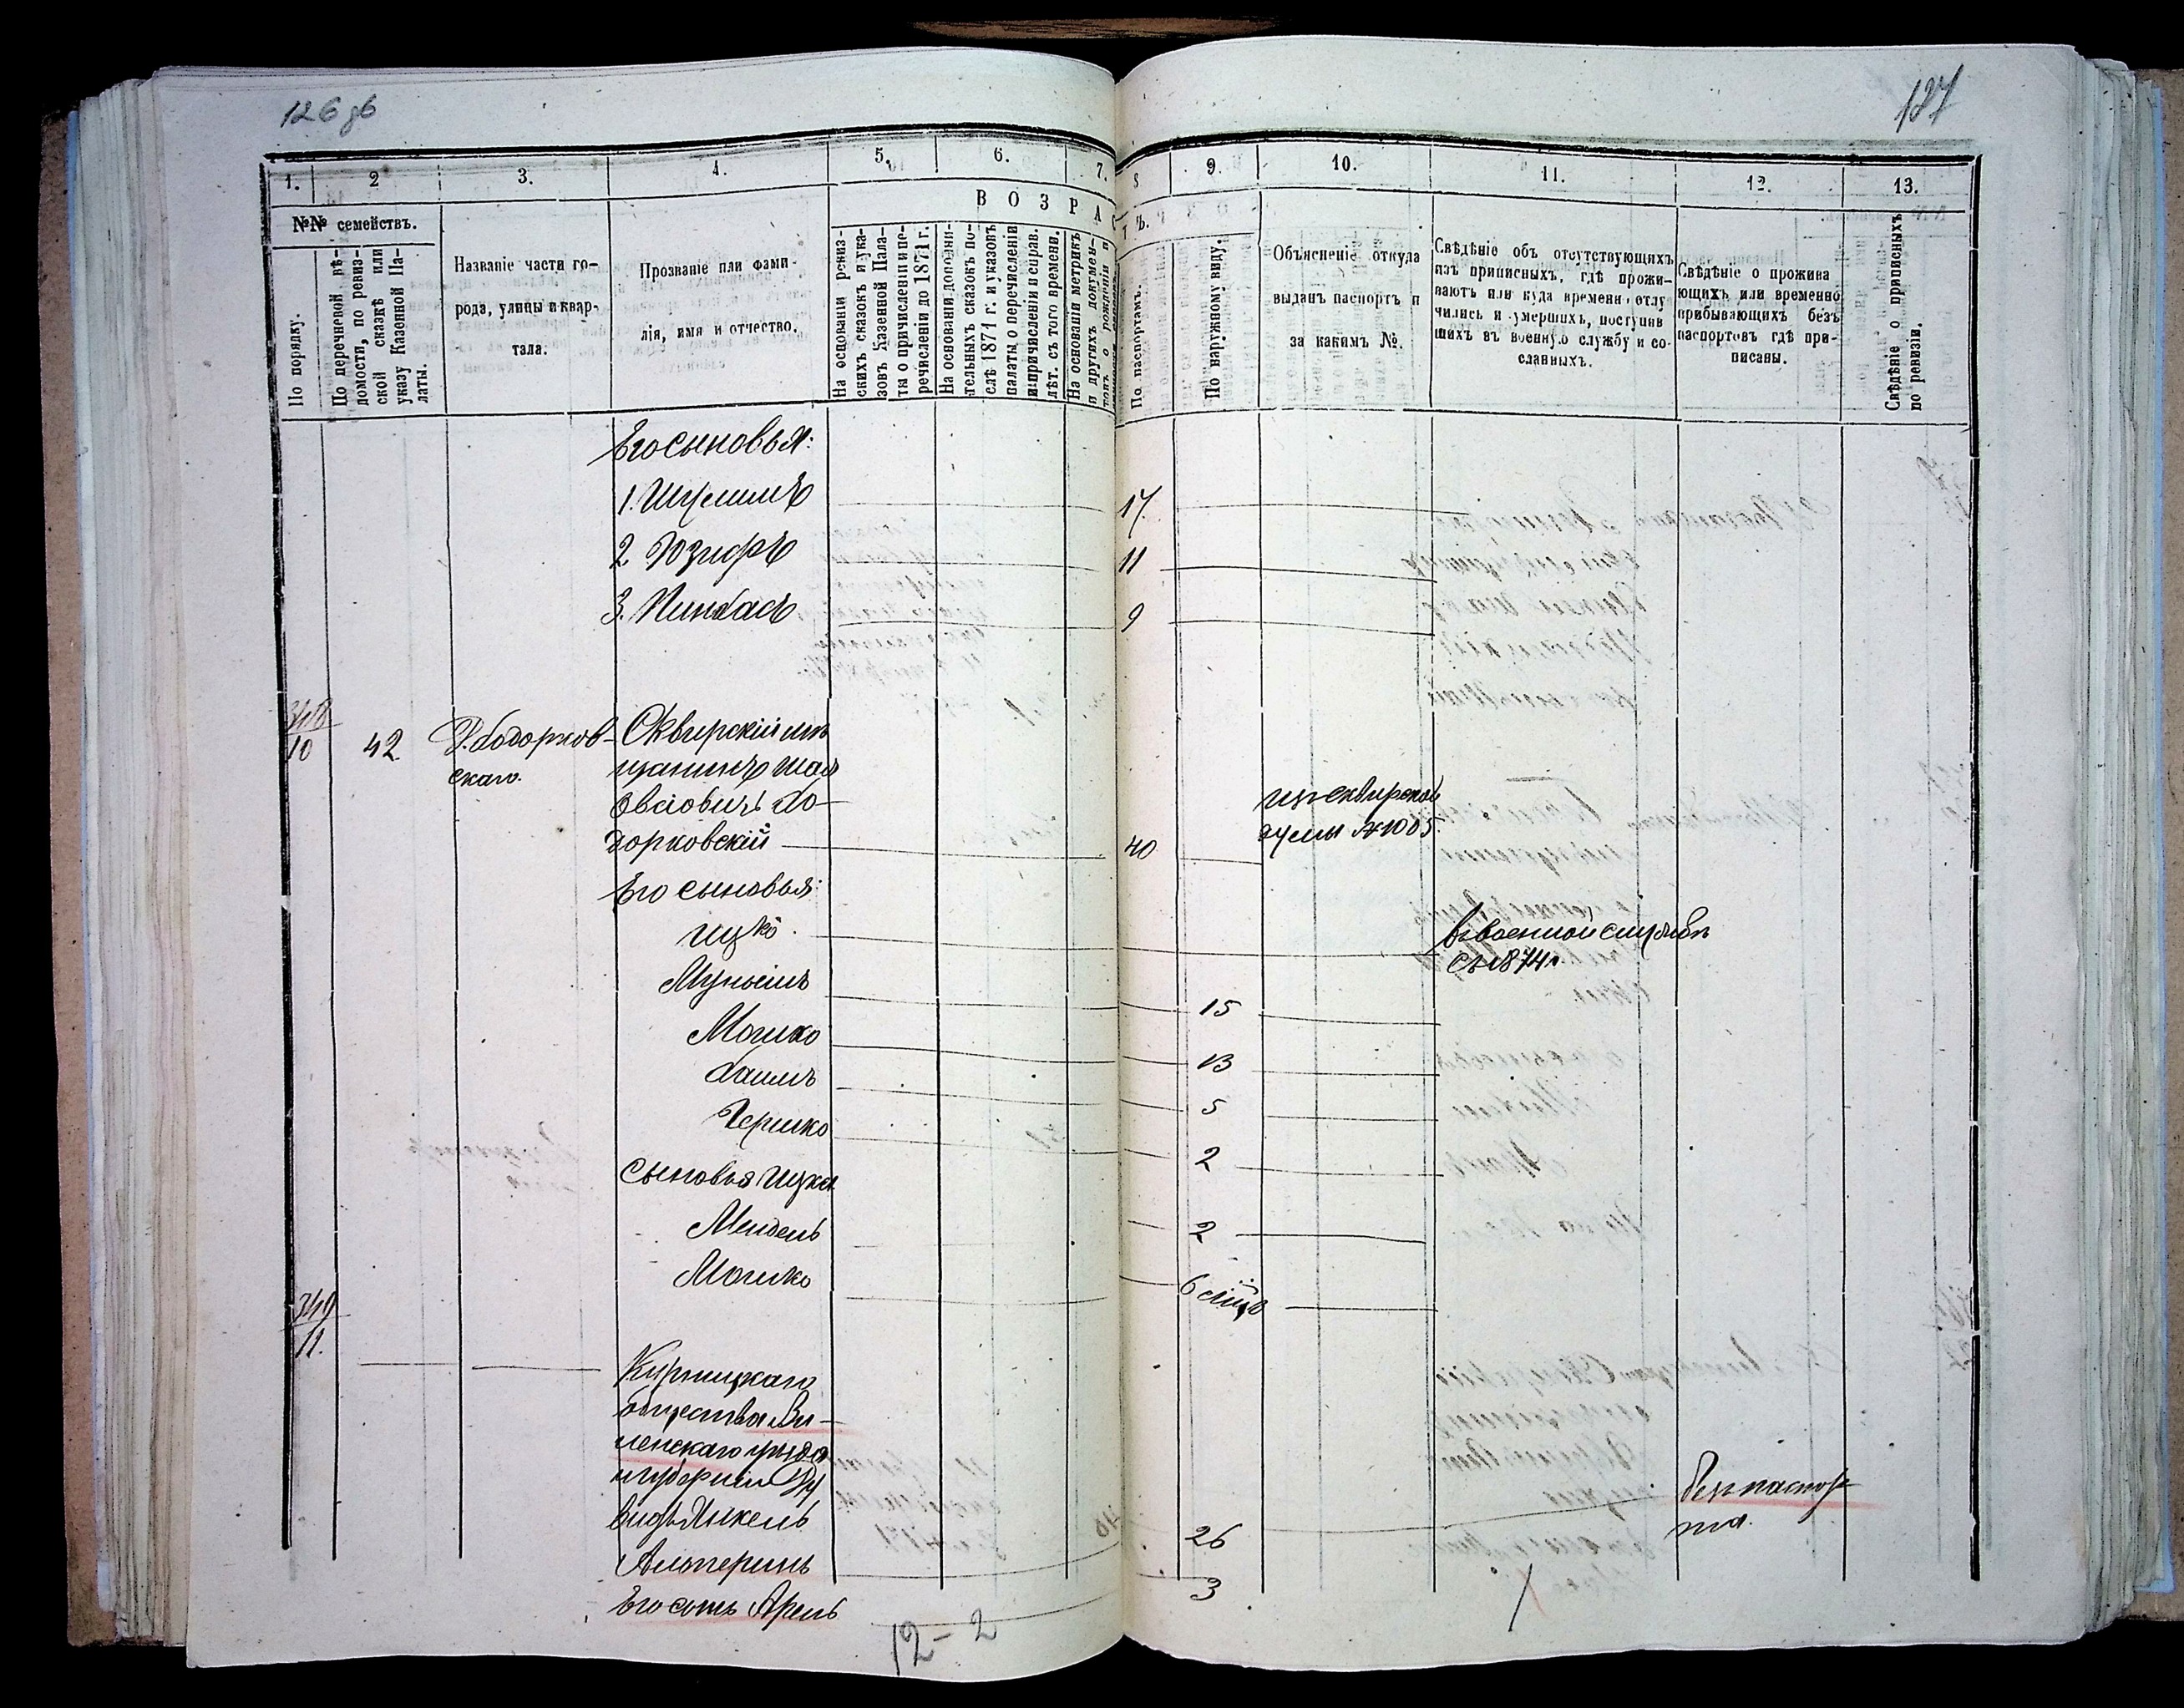 126 об
187
1. 2 3. 4. 5. 6. 7. 8 9. 10. 11. 12. 13.
№№ семействъ.
По порядку.
По перечневой вѣ-
домости, по ревиз-
ской сказкѣ или
указу Казенной Па-
латы.
Названіе части го-
рода, улицы и квар-
тала.
Прозваніе или фами-
лія, имя и отчество.
В О З Р А С Т Ъ.
На основаніи ревиз-
скихъ сказокъ и ука-
зовъ Казенной Пала-
ты о причисленіи и пе-
речисленіи до 1871 г.
На основаніи дополни-
тельныхъ сказокъ по-
слѣ 1871 г. и указовъ
палаты о перечисленіи
и причисленіи и справ.
лѣт. съ того времени.
На основаніи метрикъ
и другихъ докумен-
товъ о рожденіи и
По паспортамъ.
По наружному виду.
Объясненіе откуда
выданъ паспортъ и
за какимъ №.
Свѣдѣніе объ отсутствующихъ
изъ приписныхъ, гдѣ прожи-
ваютъ или куда времени отлу
чились и умершихъ, поступив
шихъ въ военную службу и со-
сланныхъ.
Свѣдѣніе о прожива
ющихъ или временно
прибывающихъ безъ
паспортовъ гдѣ при-
писаны.
Свѣдѣніе о приписныхъ
по ревизіи.
Его сыновья:
1. Шулимъ 17
2 Юзифъ 11
3. Пинхасъ 9
348
10 42 Ходорков-
скаго.
Сквирскій мѣ
щанинъ Шая
Овсіовичъ Хо-
дорковскій 40
изъ Сквирской
думы №1005.
Его сыновья:
Ицко
въ военной службѣ
съ 1874 г.
15
Мошко 13
Хаимъ 5
Гершко 2
Сыновья Ицка
Мендель 2
Мошко 6
349
11.
общества Ви-
ленскаго уѣзда
и губерніи
Янкель
Альперинъ 26
безъ паспор
та.
Его сынъ Арель 3
12 - 2